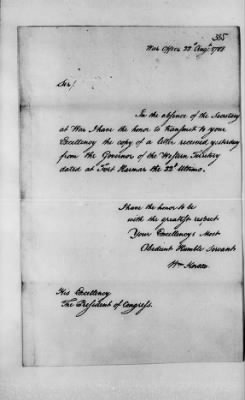 355
War Office 22d Augt. 1788
Sir,
In the absence of the Secretary
at War I have the honor to transmit to your
Excellency the copy of a letter received yesterday
from the Governor of the Western Territory
dated at Fort Harmar the 22d Ultimo.
I have the honor to be
with the greatest respect
Your Excellency's Most
Obedient Humble Servant
Wm Knox
His Excellency
The President of Congress.